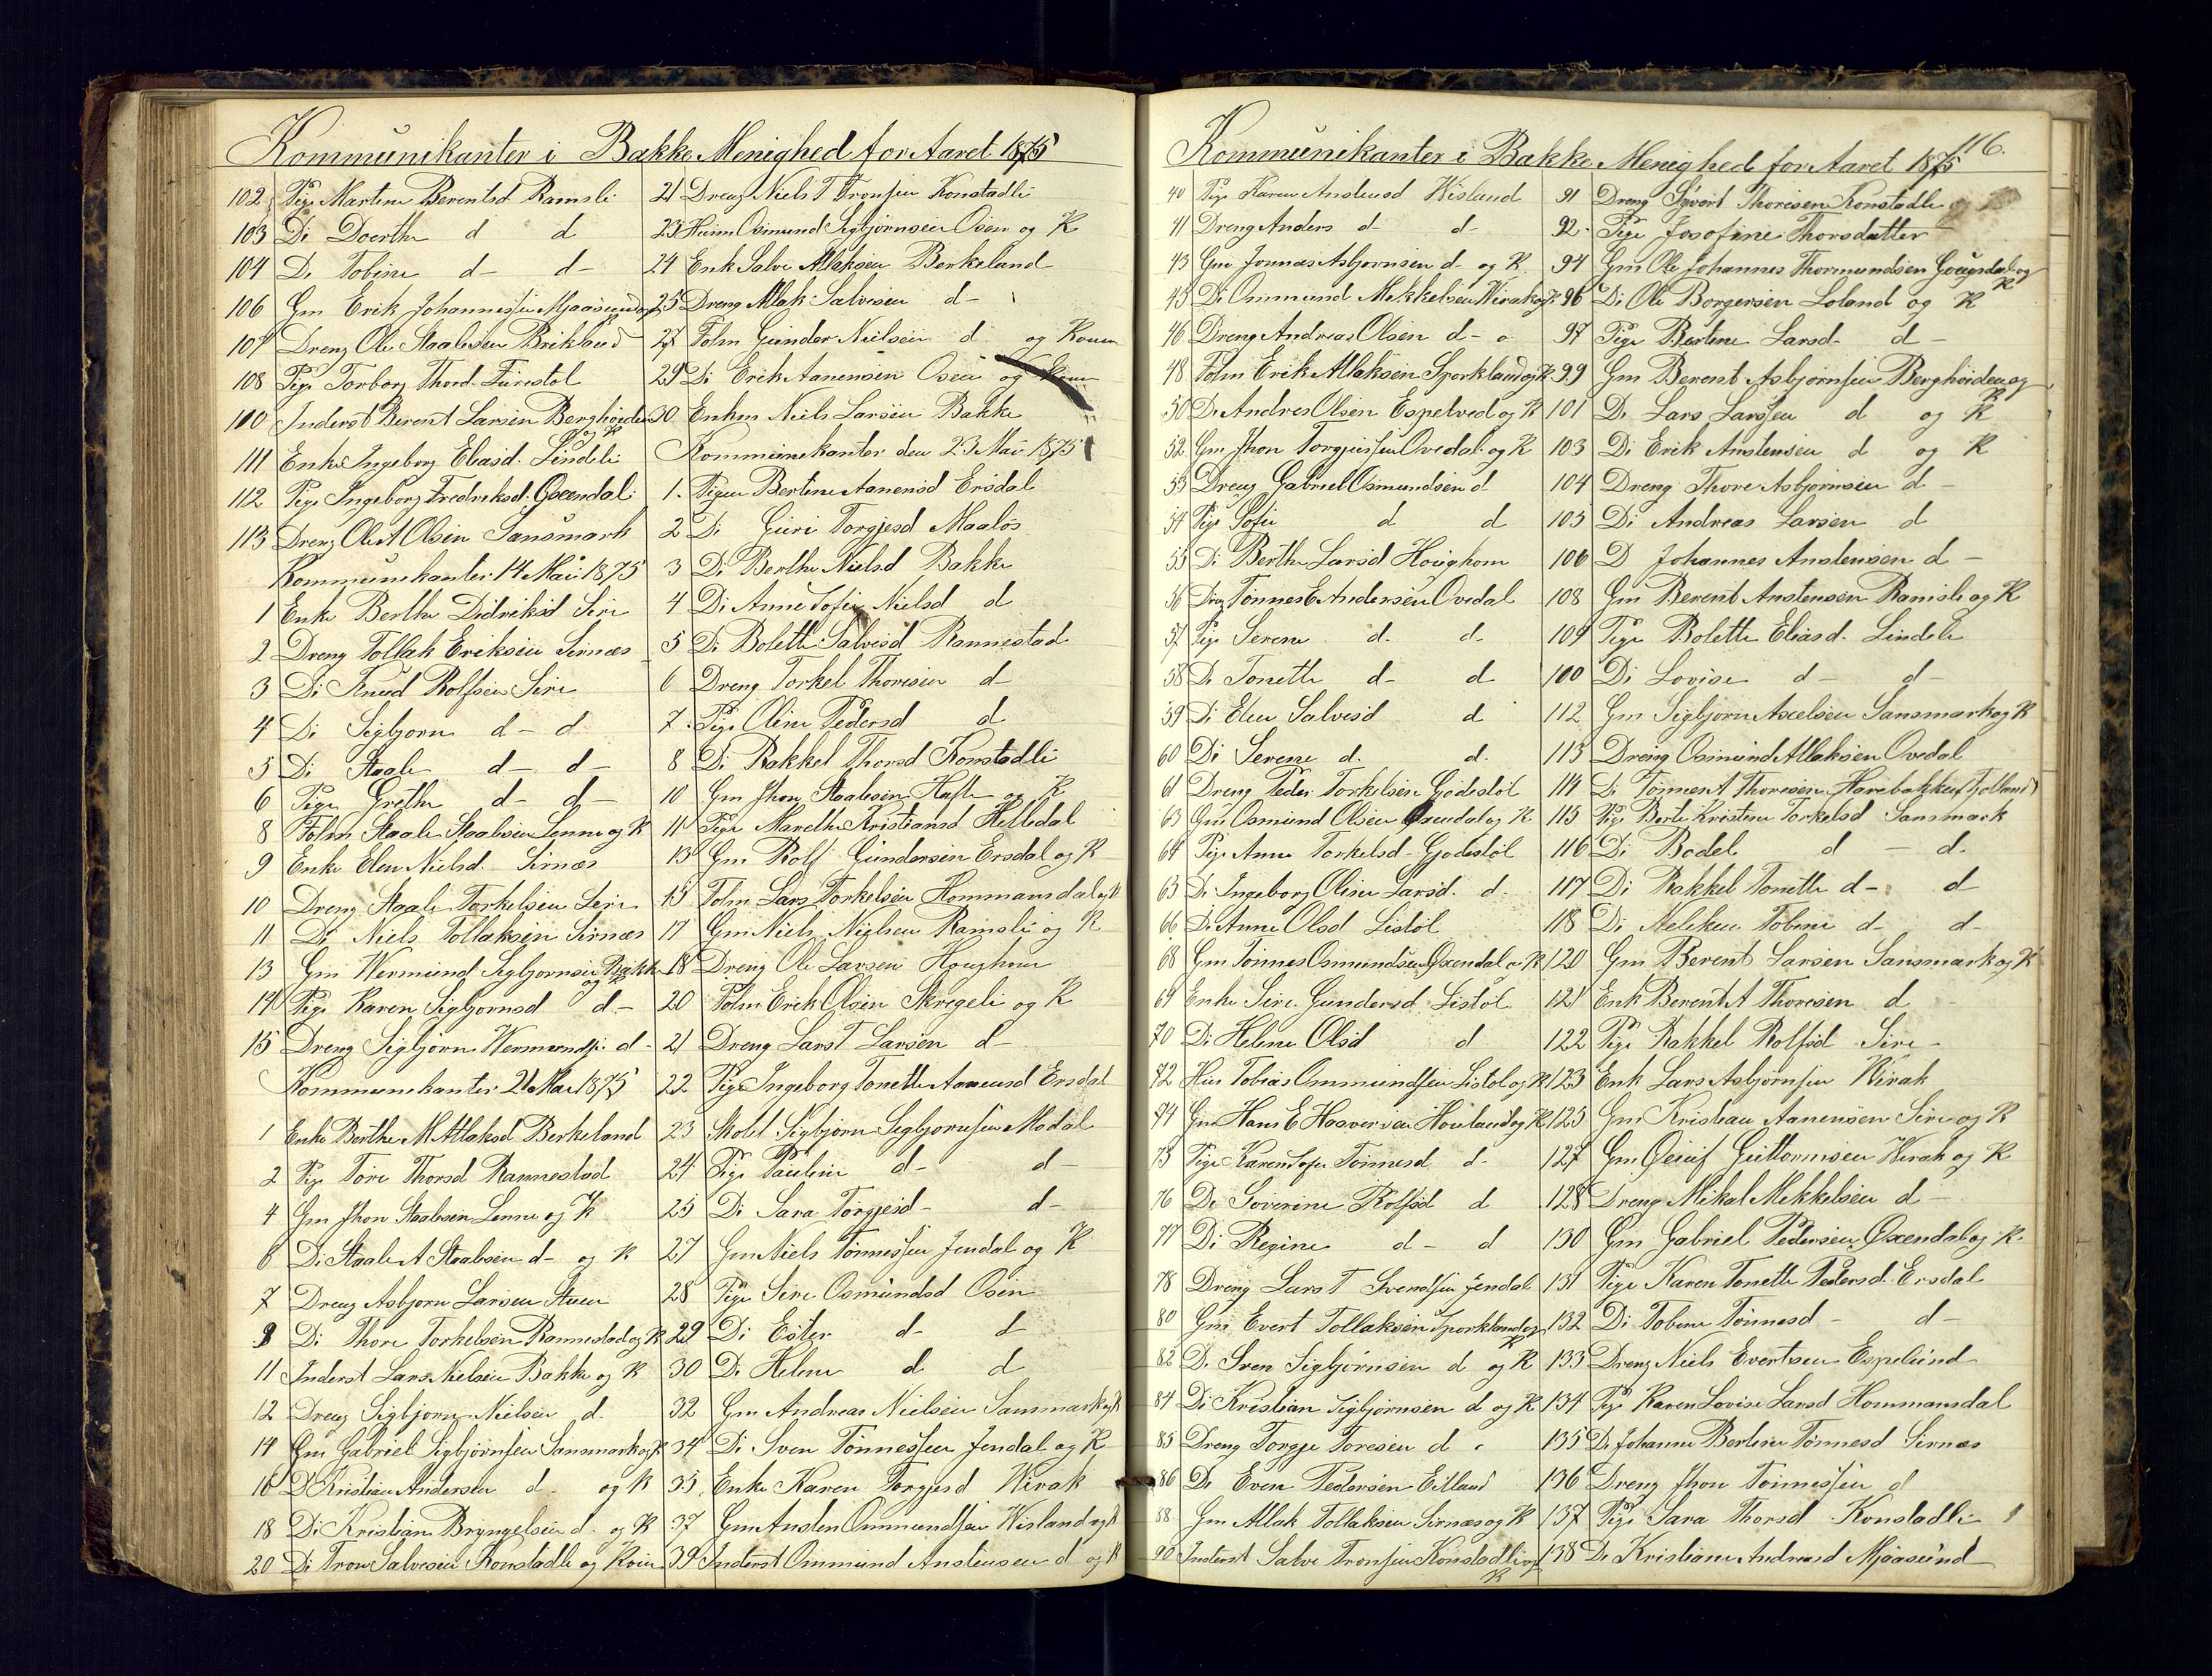 Kommunikanter i Bakke Menighed for Aaret 1875
102 Pige Martine Berentsd Ramsli
103 Di Doerthe d d
104 Di Tobine d- d-
106 Gm Erik Johannessen Mjaasund og K
107 Dreng Ole Staalesen Birkland
108 Pige Torborg Thord. Furestøl
100 Inderst Berent Larsen Berghøiden
og K
111 Enke Ingeborg Eliasd. Lindeli
112 Pige Ingeborg Fredriksd. Øxendal
113 Dreng Ole A Olsen Sansmark
Kommunikanter 14 Mai 1875
1 Enke Berthe Didriksd Sire
2 Dreng Tollak Eriksen Sirnæs
3 Di Knud Rolfsen Sire
4 Di Sigbjorn d- d
5 Di Staale d- d-
6 Pige Grethe d- d-
8 Folm Staale Staalesen Lenne og K
9 Enke Elen Nielsd. Sirnæs
10 Dreng Staale Torkelsen Sire
11 Di Niels Tollaksen Sirnæs
13 Gm Wermund Sigbjornsen Bakke
og K
14 Pige Karen Sigbjornsd d-
15 Dreng Sigbjorn Wermundsen d-
Kommunikanter 21 Mai 1875
1 Enke Berthe M Atlaksd Berkeland
2 Pige Tore Thorsd Rannestad
4 Gm Jhon Staalesen Lenne og K
6 Di Staale A Staalesen d- og K
7 Dreng Asbjorn Larsen Stuen
9 Di Thore Torkelsen Rannestad og K
11 Inderst Lars Nielsen Bakke og K
12 Dreng Sigbjorn Nielsen d.
14 Gm Gabriel Sigbjørnsen Sansmark og K
16 D Kristian Andersen d- og K
18 Di Kristian Bryngelsen d. og K
20 Di Tron Salvesen Konstadli og Kone
21 Dreng Niels T Tronsen Konstadli
23 Huum Osmund Sigbjørnsen Osen og K
24 Enk Salve Atlaksen Berkeland
25 Dreng Atlak Salvesen d-
27 Folm Gunder Nielsen d og Konen
29 Di Erik Aanensen Osen og Kone
30 Enkm Niels Larsen Bakke
Kommunikanter den 23 Mai 1875
1. Pigen Bertine Aanensd Ersdal
2 Di Guri Torgjesd Maaløs
3 Di Berthe Nielsd Bakke
4 Di Anne Sofie Nielsd d
5 Di Bolette Salvesd Rannestad
6 Dreng Torkel Thoresen d-
7. Pige Oline Pedersd d
8 Di Rakkel Thorsd Konstadli
10 Gm Jhon Staalesen Hafte og K
11 Pige Marethe Kristiansd Helledal
13 Gm Rolf Gundersen Ersdal og K
15 Folm Lars Torkelsen Hommansdal og K
17 Gm Niels Nielsen Ramsli og K
18 Dreng Ole Larsen Houghom
20 Folm Erik Olsen Skregeli og K
21 Dreng Lars T Larsen d-
22 Pige Ingeborg Tonette Aanensd Ersdal
23 Skolel Sigbjørn Sigbjørnsen Modal
24 Pige Pauline d- d-
25 Di Sara Torgjesd- d-
27 Gm Niels Tønnessen Jendal og K
28 Pige Sire Osmundsd Osen
29 Di Ester d- d
30 Di Helene d d
32 Gm Andreas Nielsen Sansmark og K
34 Di Sven Tønnessen Jendal og K
35. Enke Karen Torgjesd Wirak
37 Gm Austen Ommundsen Wisland og K
39 Inderst Ommund Anstensen d og K
Kommunikanter i Bakke Menighed for Aaret 1875
116.
40 Pige Karen Anstensd Wisland
41 Dreng Anders d- d-
43 Gm Jonnas Asbjornsen d- og K
45 Di Ommund Mekkelsen Wirak og K
46 Dreng Andreas Olsen d-
48 Folm Erik Atlaksen Sporkland og K
50 Di Andres Olsen Espetved og K
52 Gm Jhon Torgjussen Ovedal og K
53 Dreng Gabriel Osmundsen d
54 Pige Sofie d d
55 Di Berthe Larsd Houghom
56 Dreng Tønnes E Andersen Ovedal
57 Pige Serene d. d.
58 Di Tonette d- d
59 Di Elen Salvesd d
60 Di Serene d. d.
61 Dreng Peder Torkelsen Gjødestøl
63 Gm Osmund Olsen Øxendal og K
64 Pige Anne Torkelsd- Gjødestøl
65 Di Ingeborg Oline Larsd. d.
66 Di Anne Olsd Listøl
68 Gm Tønnes Osmundsen Øxendal o K
69 Enke Sire Gundersd Listøl
70 Di Helene Olsd d
72 Hus Tobias Ommundsen Listøl og K
74 Gm Hans E Haaversen Houland og K
75 Pige Karen Sofie Tønnesd d-
76 Di Severine Rolfsd d
77 Di Regine d- d
78 Dreng Lars T Svendsen Jendal
80 Gm Evert Tollaksen Sporkland og
K
82 Di Sven Sigbjørnsen d og K
84 Di Kristian Sigbjørnsen d og K
85 Dreng Torgje Toresen d
86 Di Even Pedersen Eitland
88 Gm Atlak Tollaksen Sirnæs og K
90 Inderst Salve Tronsen Konstadli og
K
91 Dreng Syvert Thoresen Konstadli
92. Pige Josefine Thorsdatter
94 Gm Ole Johannes Thormundsen Gougsdal og
K
96 Di Ole Borgersen Løland og K
97 Pige Bertine Larsd- d-
99 Gm Berent Asbjørnsen Berghøiden og
K
101 Di Lars Larssen d og K
103 Di Erik Anstensen d og K
104 Dreng Thore Asbjørnsen d-
105 Di Andreas Larsen d
106 D Johannes Anstensen d-
108 Gm Berent Anstensen Ramsli og K
109 Pige Bolette Eliasd. Lindeli
100 Di Lovise d- d-
112 Gm Sigbjørn Axelsen Sansmark og K
113 Dreng Osmund Atlaksen Ovedal
114 Di Tønnes A Thoresen Harebakken (Fjotland)
115 Pige Berte Kristine Torkelsd Sansmark
116 Di Bodel d- d.
117 Di Rakkel Tonette d- d
118 Di Meleken Tobine d- d-
120 Gm Berent Larsen Sansmark og K
121 Enk Berent A Thoresen d
122 Pige Rakkel Rolfsd Sire
123 Enk Lars Asbjørnsen Wirak
125 Gm Kristian Aanensen Sire og K
127 Gm Guttormsen Wirak og K
128 Dreng Mikal Mekkelsen d-
130 Gm Gabriel Pedersen Øxendal og K.
131 Pige Karen Tonette Pedersd. Ersdal
132 Di Tobine Tønnesd- d-
133 Dreng Niels Evertsen Espelund
134 Pige Karen Lovise Larsd Hommansdal
135 Di Johanne Bertine Tønnesd Sirnæs
136 Dreng Jhon Tønnessen d
137 Pige Sara Thorsd Konstadli
138 Di Kristiane Andreasd Mjaasund